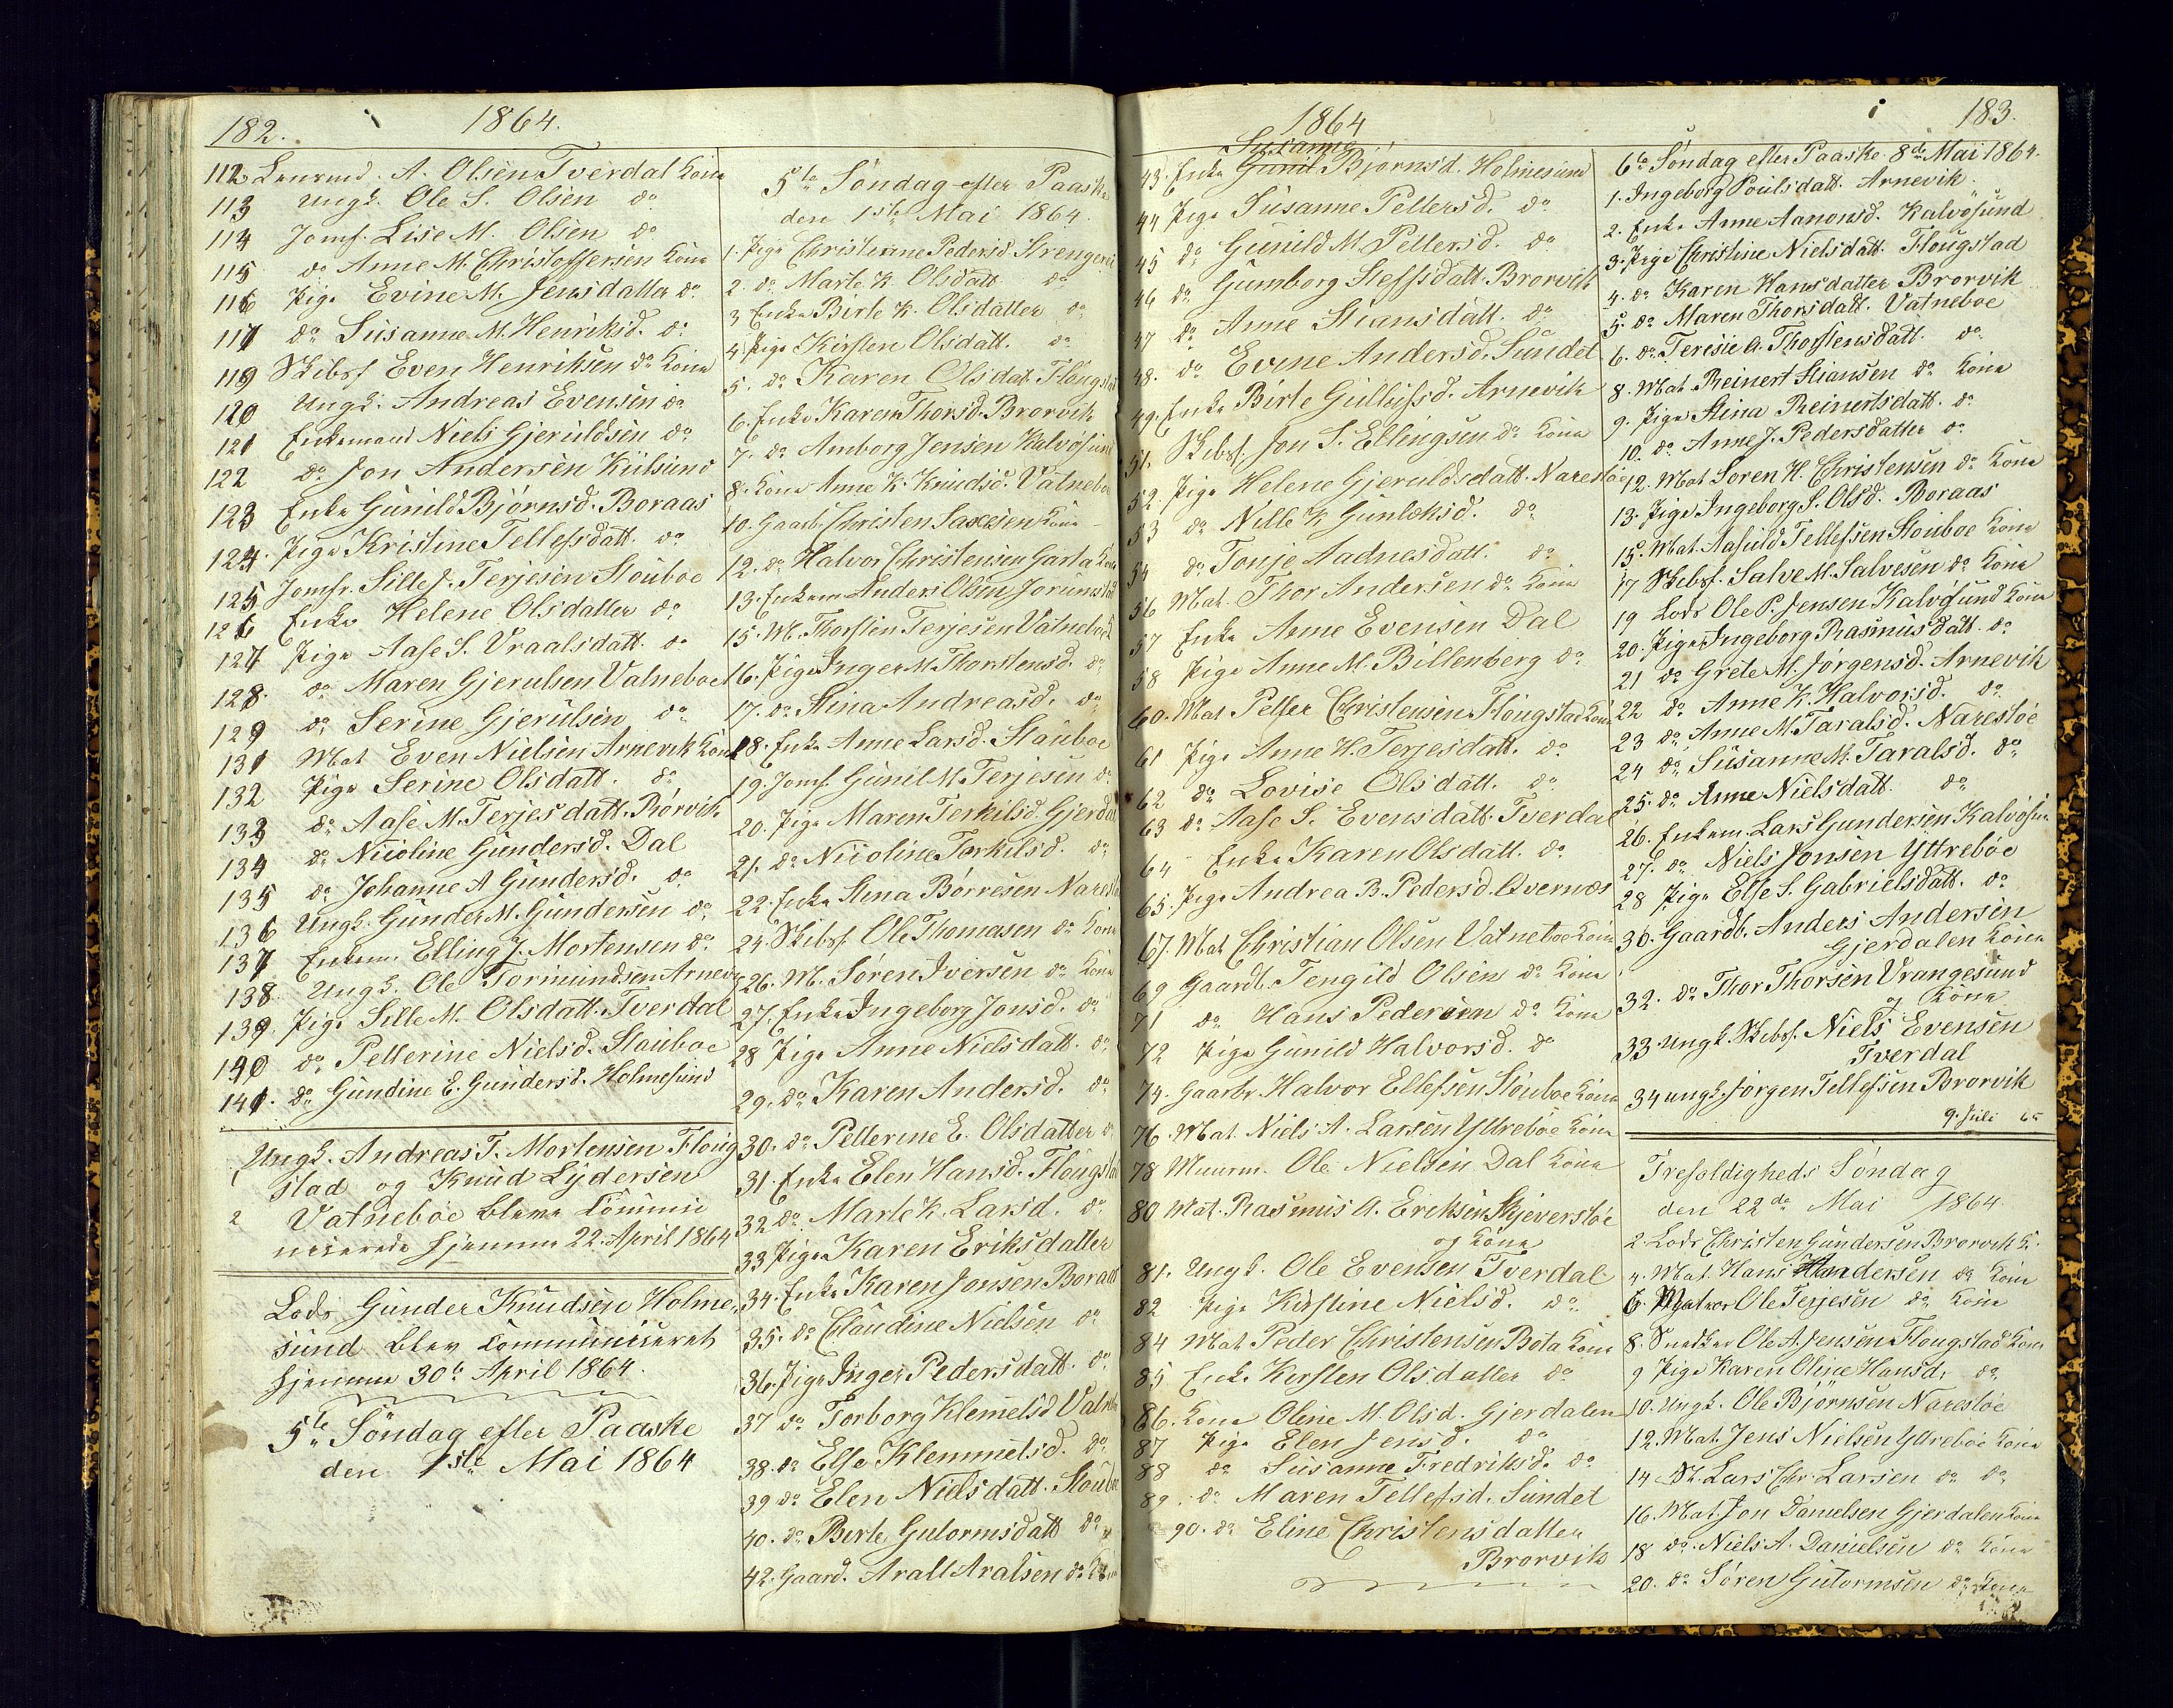 182.
1864.
112 Lensmd. A. Olsen Tverdal Kone
113 Ungk. Ole S. Olsen do
114 Jomf. Lise M. Olsen do
115 do Anne M. Christoffersen Kone
116 Pige Evine M. Jensdatter do
117 do Susanne M. Henriksd. do
119 Skibsf Even Henriksen do Kone
120 Ungk. Andreas Evensen do
121 Enkemand Niels Gjeruldsen do
122 do Jon Andersen Kilsund
123 Enke Gunild Bjørnsd. Boraas
124. Pige Kristine Tellefsdatt. do
125 Jomfr. Sille J. Terjesen Stouboe
126 Enke Helene Olsdatter do
127 Pige Aase S. Vraalsdatt. do
128. do Maren Gjerulsen Vatneboe
129 do Serine Gjerulsen do
131 Mat Even Nielsen Arnevik Kone
132 Pige Serine Olsdatt. do
133 do Aase M. Terjesdatt. Rørvik
134 do Nicoline Gundersd. Dal
135 do Johanne A Gundersd. do
136 Ungk. Gunder M. Gundersen do
137 Enkem. Elling J. Mortensen do
138 Ungk. Ole Tormundsen Arnev
139. Pige Sille M. Olsdatt. Tverdal
140 do Pellerine Nielsd. Stouboe
141. do Gundine E. Gundersd. Holmesund
Ungk. Andreas T. Mortensen Floug
stad og Knud Lydersen
2 Vatneboe bleve Commu
niserede hjemme 22. April 1864
Lods Gunder Knudsen Holme
sund blev Communiseret
hjemme 30te April 1864.
5te Søndag efter Paaske
den 1ste Mai 1864
5te Søndag efter Paaske
den 1ste Mai 1864.
1. Pige Christianne Pedersd. Strengerei
2. do Marte K. Olsdatt do
3 Enke Birte K. Olsdatter do
4 Pige Kirsten Olsdatt. do
5. do Karen Olsdat. Flougstad
6. Enke Karen Thorsd. Brorvik
7. do Amborg Jensen Kalvøsund
8. Kone Anne K. Knudsd. Vatneboe
10. Gaardb. Christen Saxesen Kone
12. do Halvor Christensen Garta Kone
13. Enkem Anders Olsen Jorunstad
15. M. Thorsten Terjesen Vatneboe K
16. Pige Inger M. Thorstensd. do
17. do Stina Andreasd. do
18. Enke Anne Larsd. Stouboe
19. Jomf. Gunil M. Terjesen do
20. Pige Maren Terkilsd. Gjerdal
21. do Nicoline Terkilsd. do
22. Enke Stina Børresen Narestø
24. Skibsf. Ole Thomasen do Kone
26. M. Søren Iversen do Kone
27. Enke Ingeborg Jonsd. do
28 Pige Anne Nielsdatt. do
29. do Karen Andersd. do
30. do Pellerine E. Olsdatter do
31. Enke Elen Hansd. Flougstad
32 do Marte K. Larsd. do
33 Pige Karen Eriksdatter
34. Enke Karen Jonsen Boraas
35. do Claudine Nielsen do
36. Pige Inger Pedersdatt. do
37 do Torborg Klemetsd Vatn
38. do Else Klemmetsd. do
39 do Elen Nielsdatt. Stoub
40. do Berte Gutormsdatt do
42. Gaard. Aralt Aralsen do Kone
1864
183.
Susanne
43. Enke Gunil Bjørnsd. Holmesund
44 Pige Susanne Pellersd. do
45 do Gunild M. Pellersd. do
46 do Gumborg Steffsdatt. Brorvik
47 do Anne Stiansdatt. do
48. do Evine Andersd. Sundet
49. Enke Birte Gullufsd. Arnevik
51. Skibsf. Jon S. Ellingsen do Kone
52 Pige Helene Gjeruldsdatt. Narestøe
53 do Nille K Gunleksd. do
54 do Tonje Aadnesdatt. do
56 Mat. Thor Andersen do Kone
57 Enke Anne Evensen Dal
58 Pige Anne M. Billenberg do
60. Mat Peller Christensen Flougstad Kone
61 Pige Anne H. Terjesdatt. do
62 do Lovise Olsdatt. do
63 do Aase S. Evensdatt. Tverdal
64 Enke Karen Olsdatt. do
65. Pige Andrea B. Pedersd. Qvernæs
67. Mat Christian Olsen Vatneboe Kone
69 Gaardb. Tengild Olsen do Kone
71 do Hans Pedersen do Kone
72 Pige Gunild Halvorsd. do
74. Gaardbr Halvor Ellefsen Stouboe Kone
76. Mat. Niels A. Larsen Yttreböe Kone
78 Muurm. Ole Nielsen Dal Kone
80 Mat. Rasmus A. Eriksen Skjeverstøe
og Kone
81. Ungk. Ole Evensen Tverdal
82 Pige Kirstine Nielsd. do
84 Mat Peder Christensen Bota Kone
85 Enke Kirsten Olsdatter do
86. Kone Oline M. Olsd. Gjerdalen
87 Pige Elen Jensd. do
88 do Susanne Fredriksd. do
89. do Maren Tellefsd. Sundet
90. do Eline Christensdatter
Brorvik
6te Søndag efter Paaske 8de Mai 1864.
1. Ingeborg Poulsdatt. Arnevik
2. Enke Anne Aanonsd. Kalvøsund
3. Pige Christine Nielsdatt. Flougstad
4. do Karen Hansdatter Brorvik
5. do Maren Thorsdatt. Vatneboe
6. do Teresie A. Thorstensdatt. do
8. Mat Reinert Stiansen do Kone
9. Pige Stina Reinertsdatt. do
10. do Anne J. Pedersdatter do
12. Mat Søren H. Christensen do Kone
13. Pige Ingeborg S. Olsd. Boraas
15. Mat. Aasuld Tellefsen Stouboe Kone
17 Skibsf. Salve M. Salvesen do Kone
19 Lods Ole P. Jensen Kalvøsund Kone
20. Pige Ingeborg Rasmusdatt. do
21 do Grete M. Jørgensd. Arnevik
22 do Anne K. Halvorsd. do
23 do Anne M. Taralsd. Narestøe
24 do Susanne M. Taralsd. do
25. do Anne Nielsdatt. do
26. Enkem. Lars Gundersen Kalvøsun
27. do Niels Jonsen Yttrebøe
28 Pige Else S. Gabrielsdatt. do
30. Gaardb. Anders Andersen
Gjerdalen Kone
32. do Thor Thorsen Vrangesund
og Kone
33 Ungk. Skibsf. Niels Evensen
Tverdal
34 ungk. Jørgen Tellefsen Brorvik
9. Juli 65
Trefoldigheds Søndag
den 22de Mai 1864.
2 Lods Christen Gundersen Brorvik K.
4. Mat. Hans Andersen do Kone
6. Matros Ole Terjesen do Kone
8. Snedker Ole A. Jensen Flougstad Kone
9 Pige Karen Oline Hansd. do
10. Ungk. Ole Bjørnsen Narestøe
12. Mat. Jens Nielsen Yttrebøe Kone
14 Sk. Lars Chr. Larsen do do
16. Mat. Jon Danielsen Gjerdalen Kone
18 do. Niels A. Danielsen do Kone
20. do Søren Gutormsen do Kone